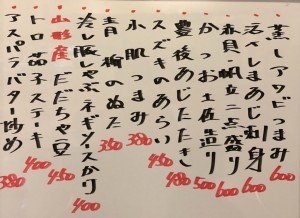 蒸しアワビ 600
活〆しまあじ刺身 600
赤貝・帆立二点盛り 600
かつお土佐造り 500
豊後あじたたき 480
スズキのあらい 450
水肌つまみ 380
青柳のぬた 350
冷し豚しゃぶネギソースがけ 400
山形産だだちゃ豆 450
トロ茄子ステーキ 400
アスパラバター炒め 380